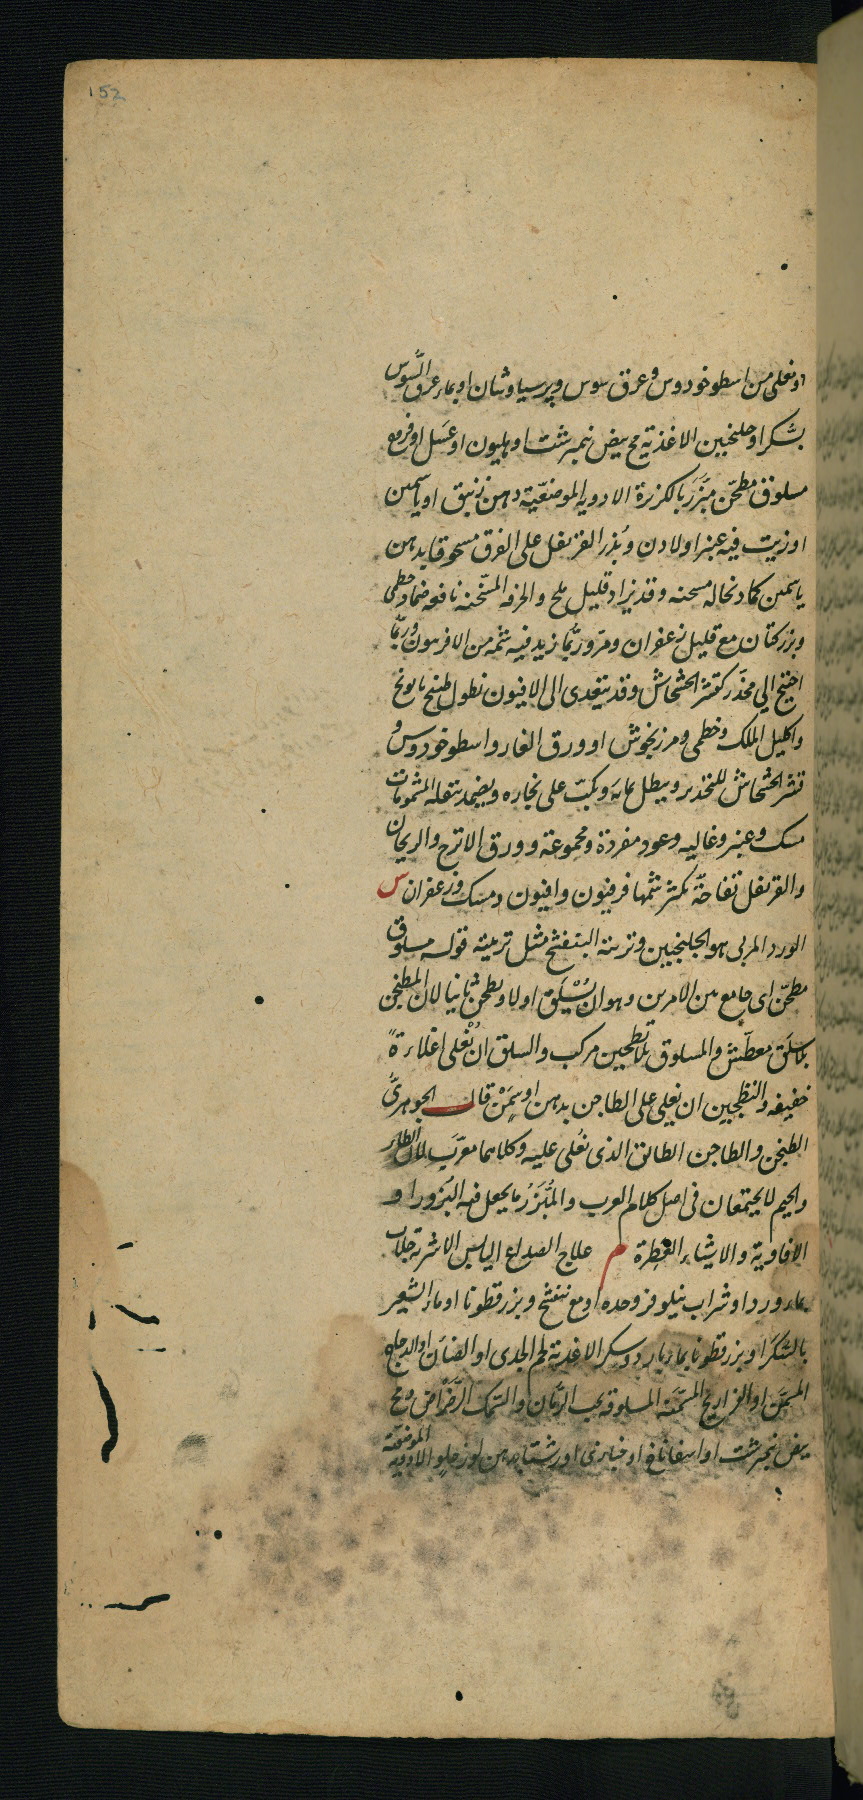 152
او مغلى من اسطوخودوس وعرق سوس وپرسياوشان او بماء عرق السُّوس
بسُكر او جلنجبين الاغذية مح بيض نيمبرشت او هليون او عسل او فرمع
مسلوق مطجّن مبَزَّر بالكزبرة الادوية الموضعيّة دهن زنبق او ياسمين
او زيت فيه عنبر او لادن ويذر القرنفل على الفرق مسحوقا بدهن
ياسمين كماد نخاله مسخنه وقد يزاد قليل ملح والخرقه المسخّنه نافعه ضماد خطمى
وبزر كتان مع قليل زعفران ومرّ وربّما زيد فيه شمه من الافربيون وربّما
احتيج الى مخدّر كقشر الخشخاش وقد يتعدى الى الافيون نطول طبيخ بابونج
واكليل الملك وخطمى ومرزنجوش او ورق الغار واسطوخودوس و
قشر الخشخاش للتخدير وينطل بمائه ويكبّ على بخاره ويضمد بثفله المشمومات
مسك وعنبر وغاليه وعود مفردة ومجموعة وورق الاترج والريحان
والقرنفل تفاحّة يكثر شمّها فرفيون وافيون ومسك وزعفران س
الورد المربى هو الجلنجبين وتربية البنفسج مثل تربيته قوله مسلوق
مطجّن اى جامع بين الامرين وهو ان يُسْلَق اولا ويطجن ثانيا لان المطجّن
بلا سَلَق معطّش والمسلوق بلا تطجين مركب والسلق ان يُغلى اغلاءةً
خفيفه والتطجين ان يغلى على الطاجن بدهن او سِمَنْ قال الجوهرىّ
الطيجن والطاجن الطابق الذى يغلى عليه وكلاهما معرّب لان الطاء
والجيم لا يجتمعان فى اصل كلام العرب والمُبَّزَر ما يجعل فيه البزور او
الافاوية والاشياء العطرة م علاج الصداع اليابس الاشربة جلاب
بماء ورد او شراب نيلوفر وحده او مع بنفسج وبزر قطونا او ماء الشعير
بالسُكر او بزر قطونا بماء بارد وسكر الاغذية لحم الجدى او الضان او الدجاج
المسمّن او الفراريج المسمّنه المسلوقه بحب الرمان والسمك الرّضراض ومح
بيض نيمبرشت او اسفاناخ او خبازى او رشتا بدهن لوز حلو الادوية الموضعيّة